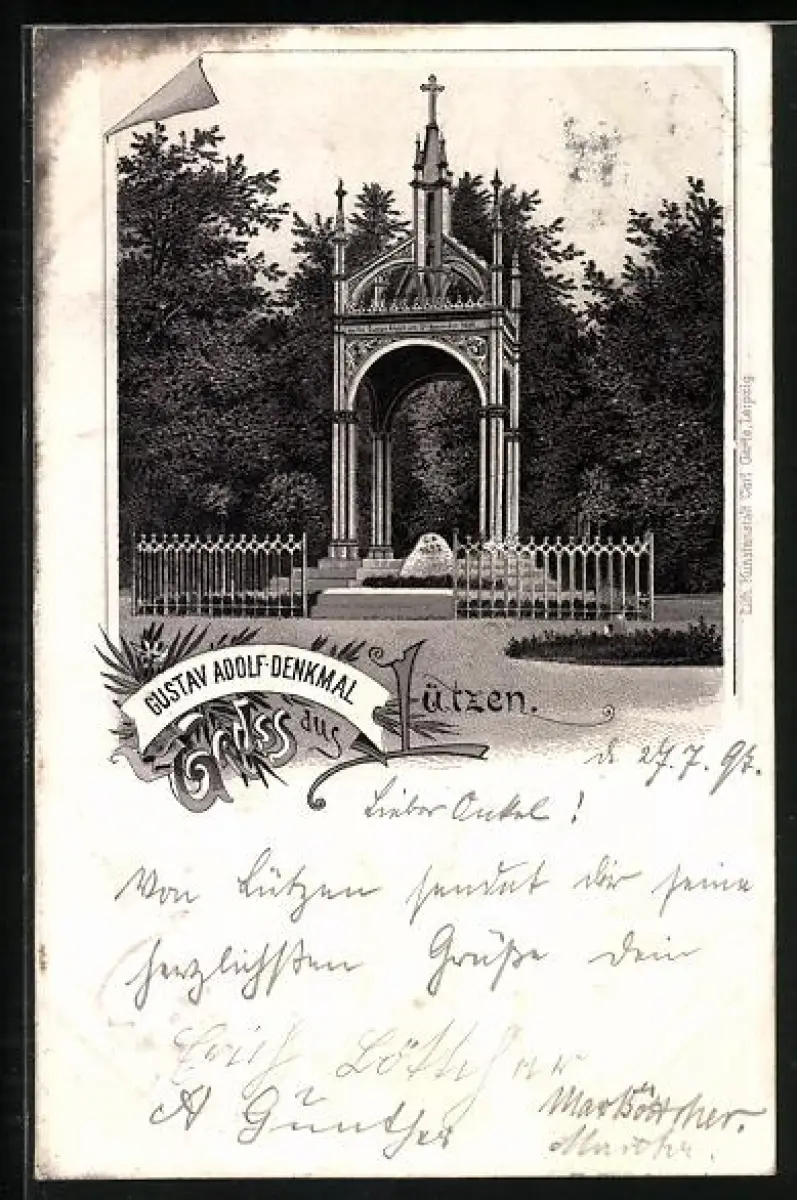 GUSTAV ADOLF-DENKMAL
Gruss aus Lützen.
Lith. Kunstanstalt Carl Garte, Leipzig
d. 27.7.97.
Lieber Onkel!
Von Lützen sendet dir seine
herzlichsten Grüße dein
Erich Böttcher
A Günther
Max Böttcher.